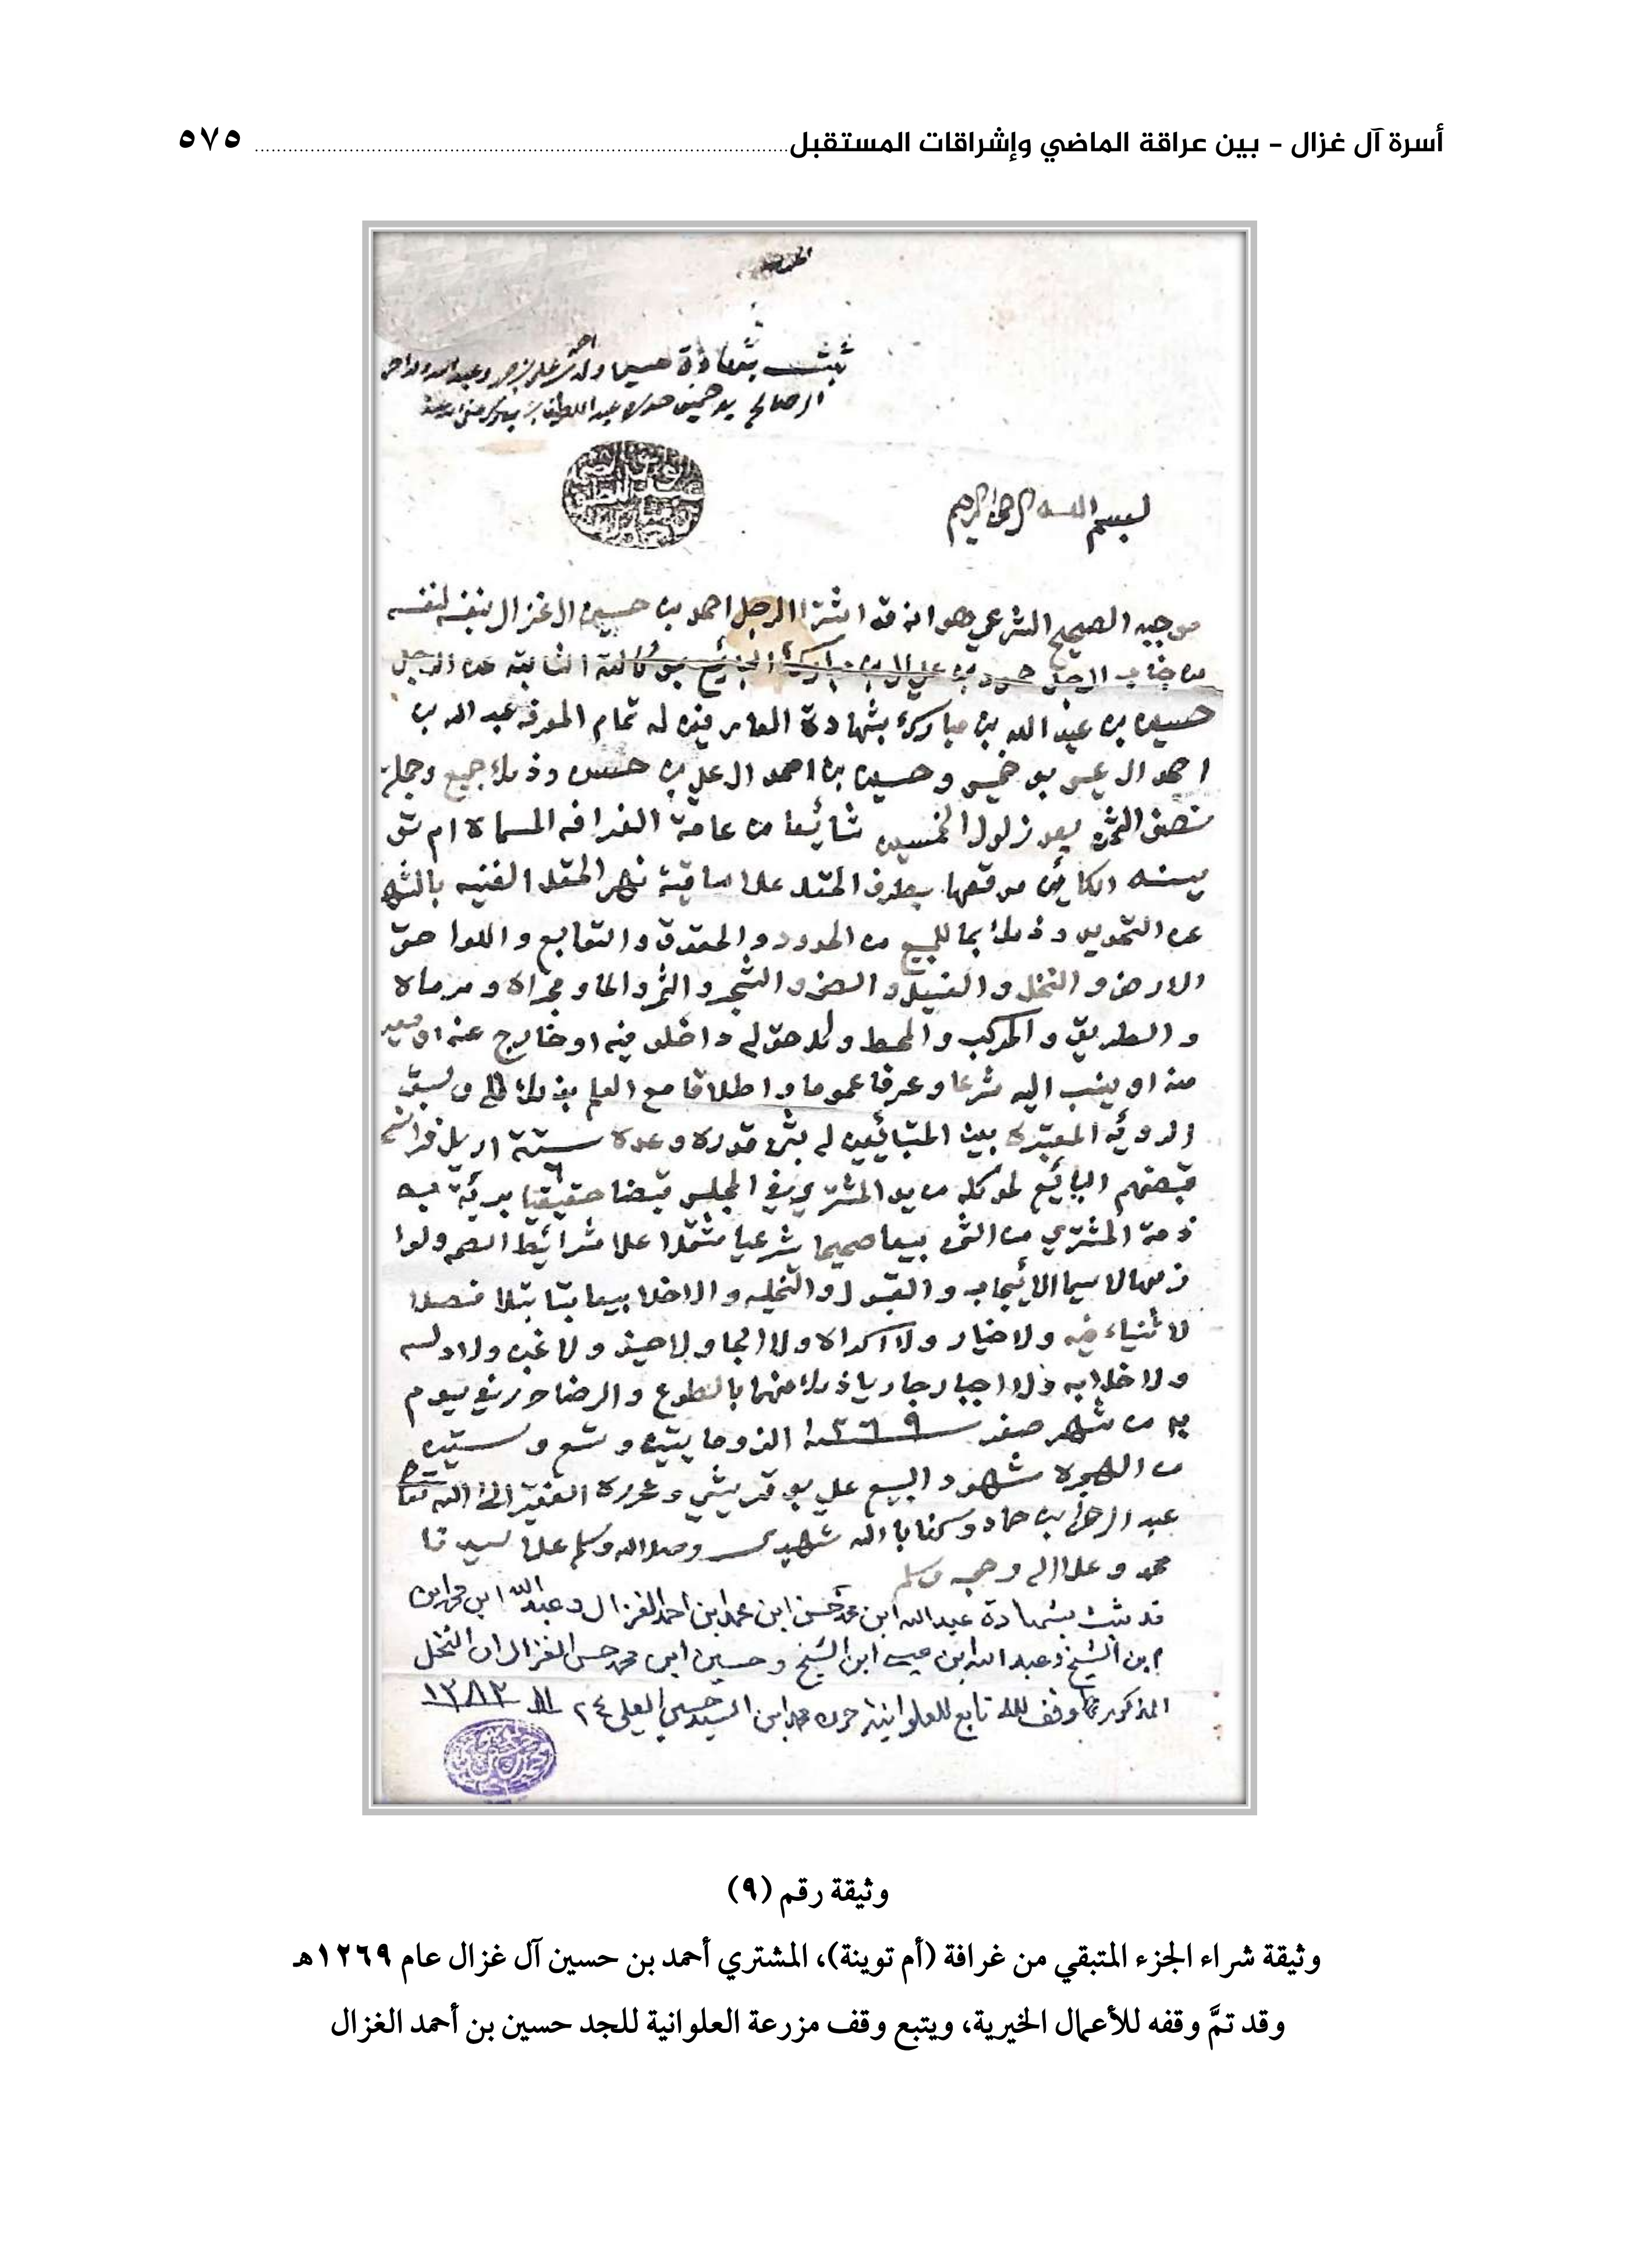 أسرة آل غزال - بين عراقة الماضي وإشراقات المستقبل ٥٧٥
ثبت بشهادة
بسم الله الرحمن الرحيم
موجبه الصحيح الشرعي هو انه قد اشترا الرجل احمد بن حسين ال غزال لنفسه
من جناب الرجل بن علي البايع الثابتة عن الرجل
حسين بن عبد الله بن مبارك بشهادة العارفين له تمام المعرفه عبد الله بن
احمد ال عيسى بو خمسين وحسين بن احمد ال علي بن حسن وذلك جميع وجملة
نصف شائعا من عامة الغرافه المسماة ام تو
ينه الكائن موقعها بطرف على ساقية نهر الحقل الغنيه بالشهره
عن التحديد وذلك بما للمبيع من الحدود والحقوق والتوابع واللواحق
الارض والنخل والفسيل والشجر والثمر والماء ومجراه ومرماه
والطريق والمركب والمحط وكل حق له داخل فيه او خارج عنه او بعيد
منه او ينسب اليه شرعا وعرفا عموما واطلاقا مع العلم بذلك وسبق
الرويه المعتبرة بين المتبائعين له بثمن قدره وعده ستة اريل فرانسه
قبضهم البائع لموكله من يد المشتري في المجلس قبضا حقيقيا برئة به
ذمة المشتري من الثمن بيعا صحيحا شرعيا مشتملا علا شرائط الصحه ولوا
زمها لاسيما الأيجاب والقبول والتخليه والاخلا بيعا بتا بتلا فصلا
لا ثنياء فيه ولا خيار ولا اكراه ولا الجا ولا حيف ولا غبن ولا دلسه
ولا خلابه ولا اجبار جاريا ذلك منهما بالطوع والرضا حرر في يوم
من شهر صفر ١٢٦٩سنة الف ومايتين وتسع وستين
من الهجرة شهود البيع علي بو قريشي وحرره الفقير الى الله تعا
عبد الرحمن بن حماد وكفا بالله شهيدا وصلا الله وسلم علا سيدنا
محمد وعلا اله وصحبه وسلم
قد ثبت بشهادة عبدالله ابن محمد حسن ابن محمد ابن احمد الغزال وعبد الله ابن
ابن الشيخ وعبد الله ابن عيسى ابن الشيخ وحسين ابن محمد حسن الغزال ان النخل
المذكور وقف لله تابع للعلوانيه حرره محمد ابن السيد حسين العلي ٢٤ ١١ ١٣٨٢
وثيقة رقم (٩)
وثيقة شراء الجزء المتبقي من غرافة (أم توينة)، المشتري أحمد بن حسين آل غزال عام ١٢٦٩هـ
وقد تمَّ وقفه للأعمال الخيرية، ويتبع وقف مزرعة العلوانية للجد حسين بن أحمد الغزال